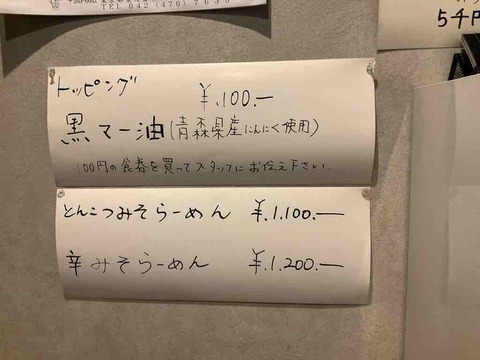 TEL 042 (470) 7630
5千円
トッピング
¥.100.—
黒マー油(青森県産にんにく使用)
100円の食券を買ってスタッフにお伝え下さい.
とんこつみそらーめん ¥.1,100.—
辛みそらーめん ¥.1,200.—